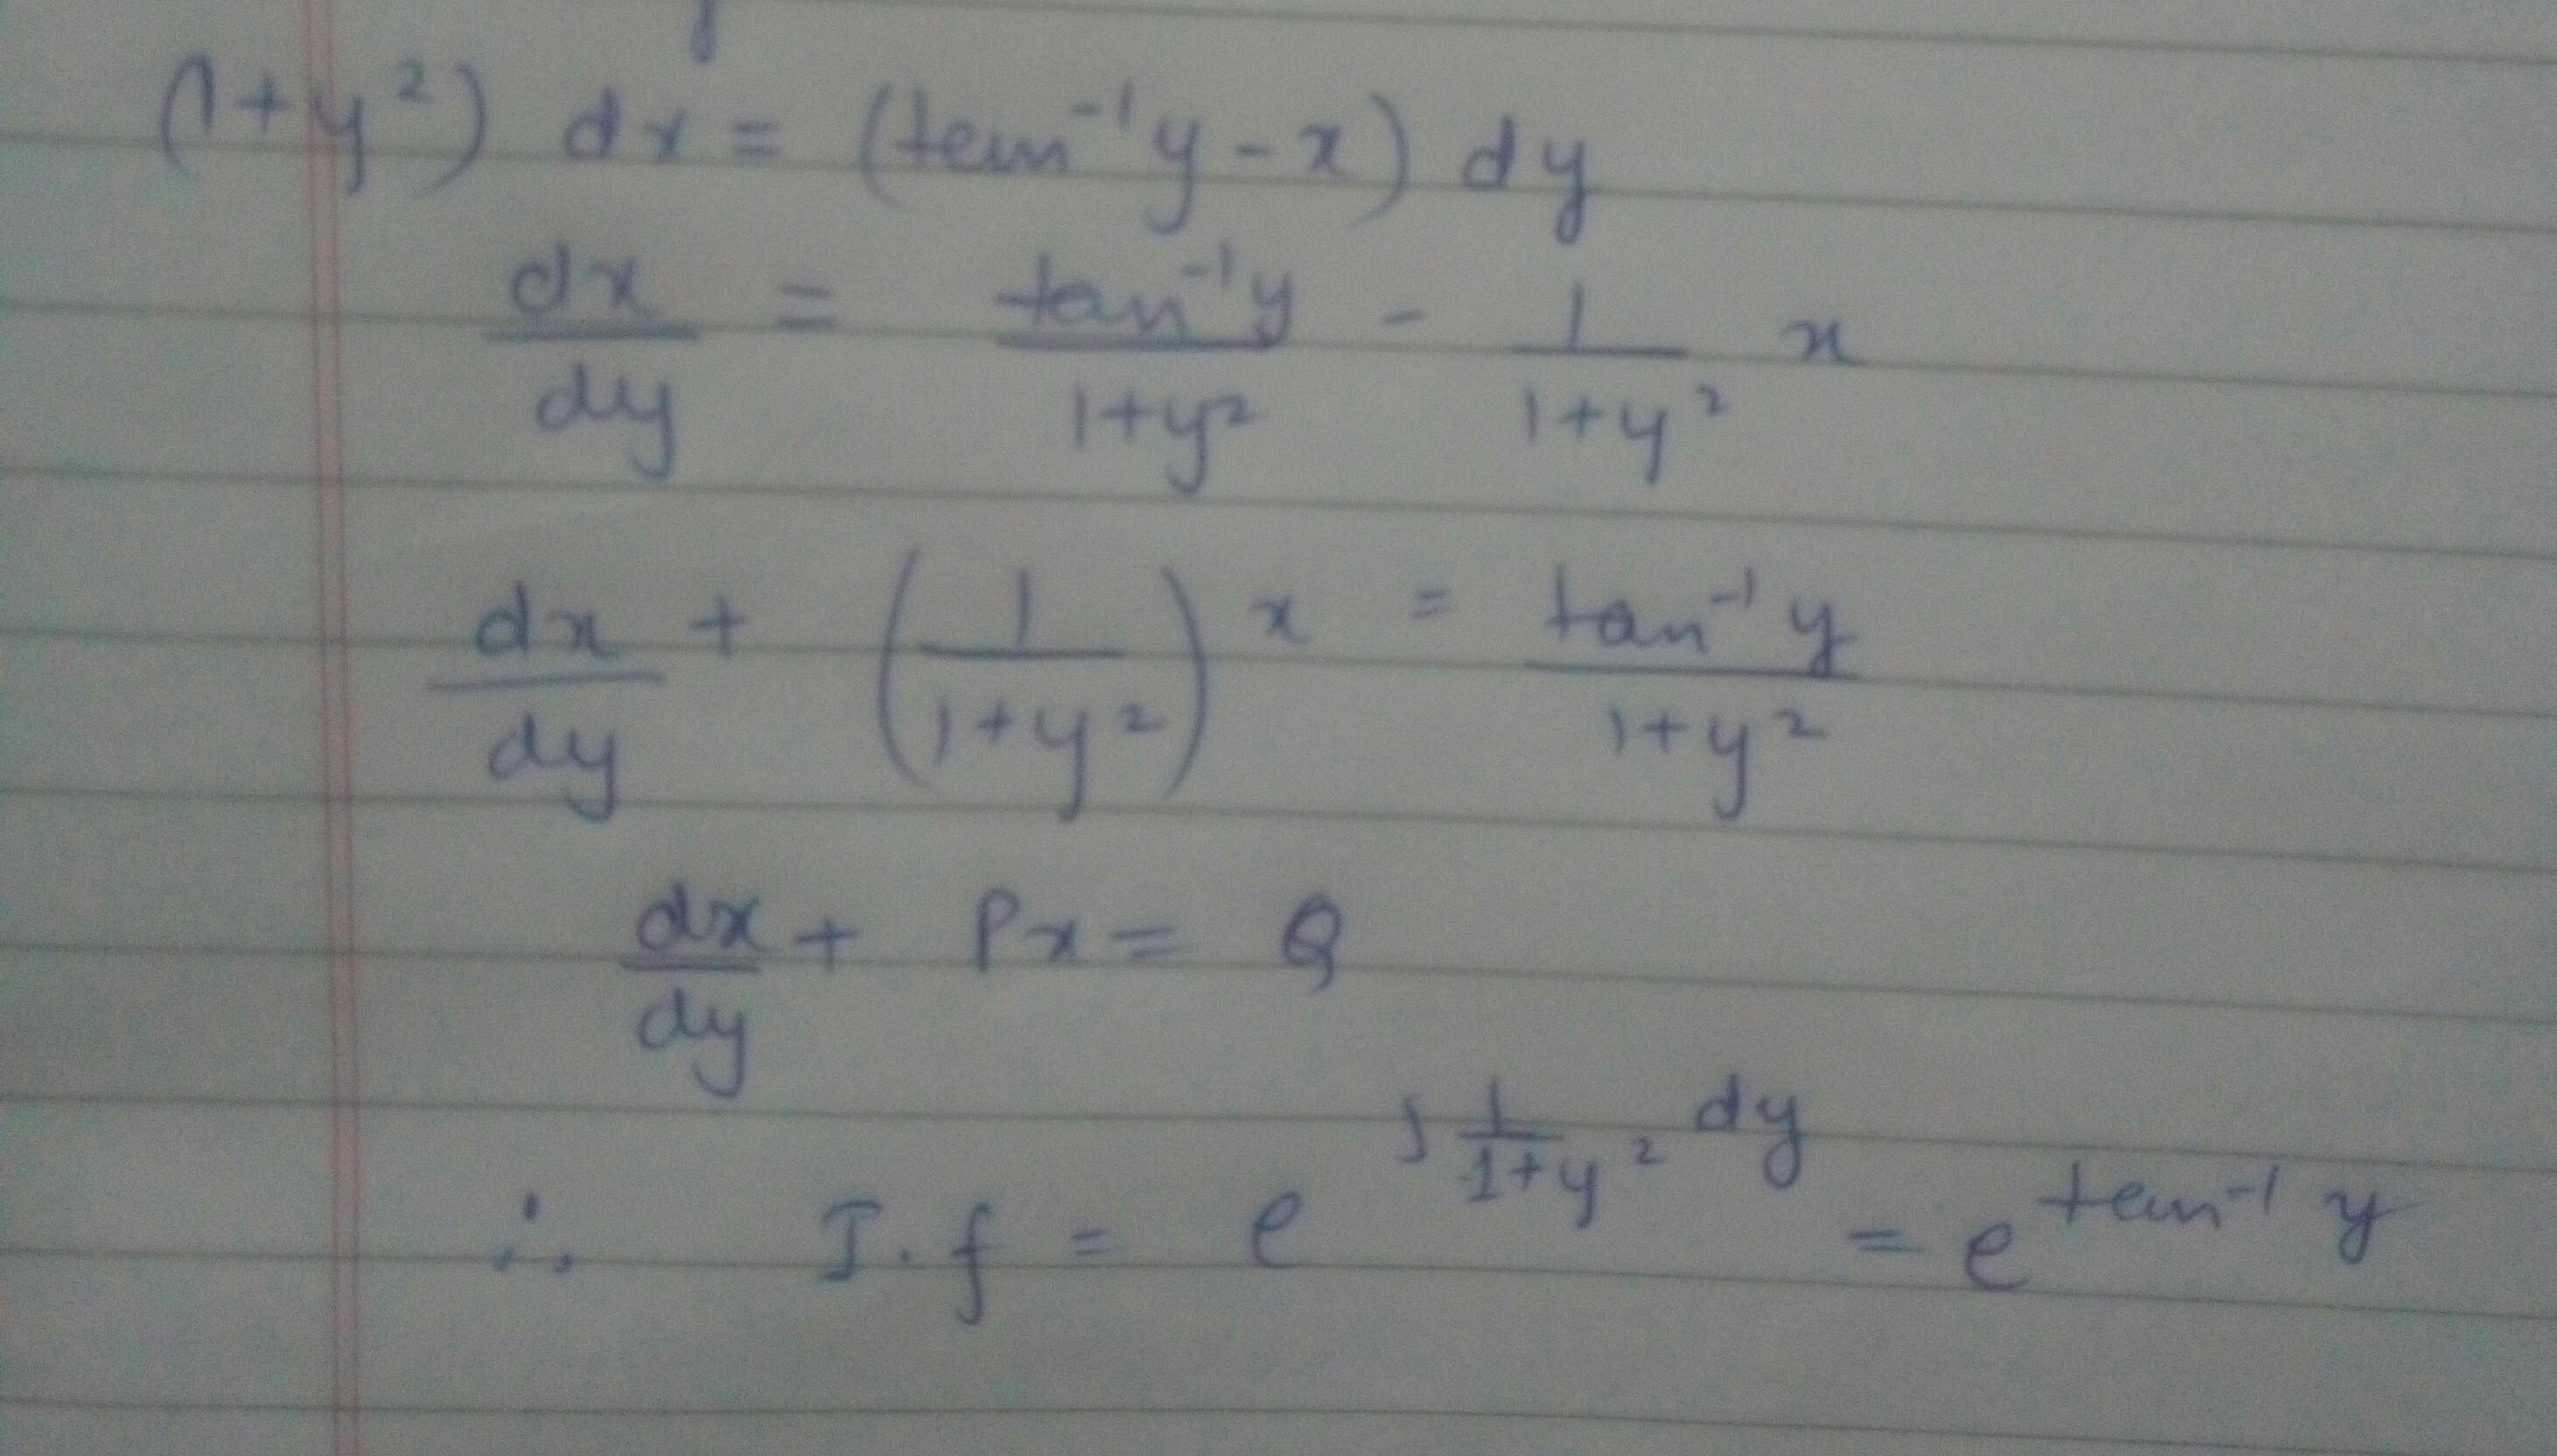 (1+y²) dx = (tan⁻¹y - x) dy
dx/dy = tan⁻¹y/1+y² - 1/1+y² x
dx/dy + (1/1+y²) x = tan⁻¹y/1+y²
dx/dy + Px = Q
∴ I.f = e^∫ 1/1+y² dy = e^tan⁻¹ y